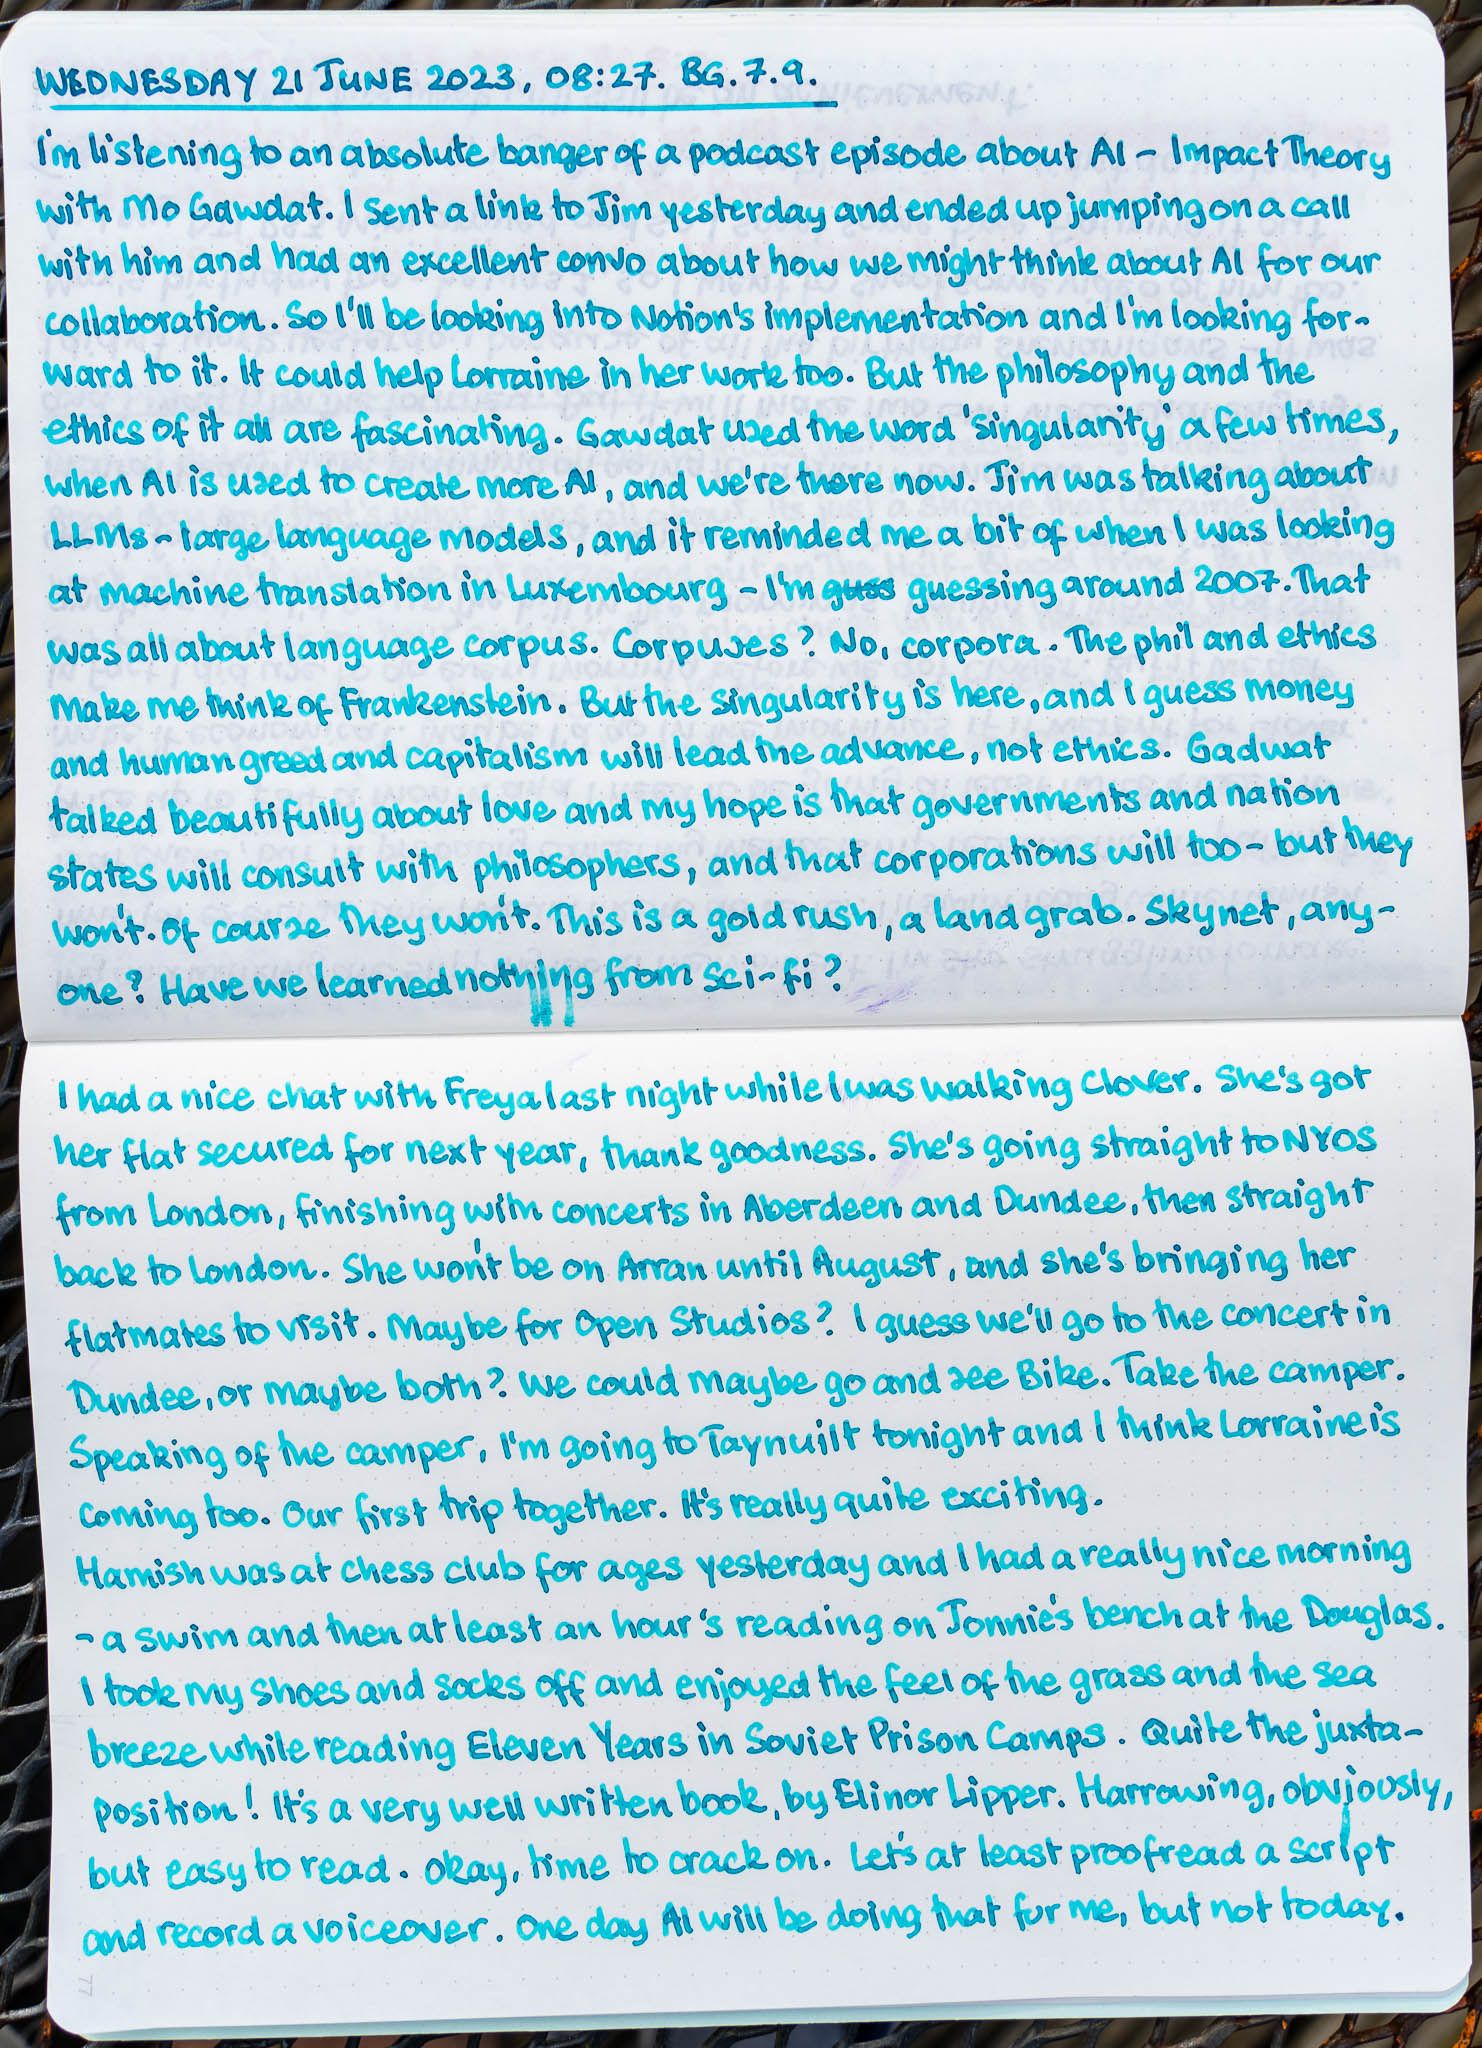 WEDNESDAY 21 JUNE 2023, 08:27. BG.7.9.
I'm listening to an absolute banger of a podcast episode about AI - Impact Theory
with Mo Gawdat. I sent a link to Jim yesterday and ended up jumping on a call
with him and had an excellent convo about how we might think about AI for our
collaboration. So I'll be looking into Notion's implementation and I'm looking for-
ward to it. It could help Lorraine in her work too. But the philosophy and the
ethics of it all are fascinating. Gawdat used the word 'singularity' a few times,
when AI is used to create more AI, and we're there now. Jim was talking about
LLMs - large language models, and it reminded me a bit of when I was looking
at machine translation in Luxembourg - I'm guss guessing around 2007. That
was all about language corpus. Corpuses? No, corpora. The phil and ethics
make me think of Frankenstein. But the singularity is here, and I guess money
and human greed and capitalism will lead the advance, not ethics. Gadwat
talked beautifully about love and my hope is that governments and nation
states will consult with philosophers, and that corporations will too - but they
won't. Of course they won't. This is a gold rush, a land grab. Skynet, any-
one? Have we learned nothing from sci-fi?
I had a nice chat with Freya last night while I was walking Clover. She's got
her flat secured for next year, thank goodness. She's going straight to NYOS
from London, finishing with concerts in Aberdeen and Dundee, then straight
back to London. She won't be on Arran until August, and she's bringing her
flatmates to visit. Maybe for Open Studios? I guess we'll go to the concert in
Dundee, or maybe both? We could maybe go and see Bike. Take the camper.
Speaking of the camper, I'm going to Taynuilt tonight and I think Lorraine is
coming too. Our first trip together. It's really quite exciting.
Hamish was at chess club for ages yesterday and I had a really nice morning
- a swim and then at least an hour's reading on Jonnie's bench at the Douglas.
I took my shoes and socks off and enjoyed the feel of the grass and the sea
breeze while reading Eleven Years in Soviet Prison Camps. Quite the juxta-
position! It's a very well written book, by Elinor Lipper. Harrowing, obviously,
but easy to read. Okay, time to crack on. Let's at least proofread a script
and record a voiceover. One day AI will be doing that for me, but not today.
77